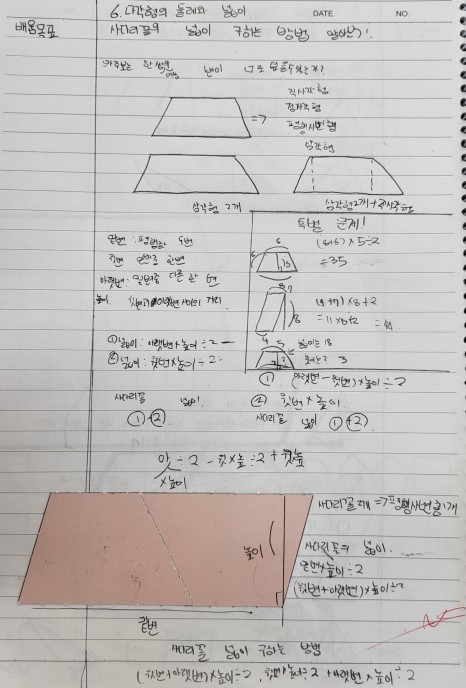 6. 다각형의 둘레와 넓이
DATE. NO.
배움목표
사다리꼴의 넓이 구하는 방법 알아보기!
마주보는 한 쌍의
직사각형
정사각형
평행사변형
삼각형
삼각형 2개
삼각형 2개 + 직사각형
특별 문제!
밑변 : 평행한 두변
윗변 한변
아랫변 : 밑변중 다른 한 변
높이 거리
(8+6)×5÷2
=35
(4+7)×8÷2
=11×8÷2 = 44
넓이는 18
높이는? 3
① 넓이 : 아랫변×높이÷2
② 넓이 : 윗변×높이÷2
사다리꼴 넓이
①+②
① (아랫변-윗변)×높이÷2
② 윗변×높이
사다리꼴 넓이 ①+②
×높이
높이
사다리꼴 2개 => 평행사변형 1개
사다리꼴의 넓이
밑변×높이÷2
(윗변+아랫변)×높이÷2
밑변
사다리꼴 넓이 구하는 방법
(윗변+아랫변)×높이÷2, 윗변×높이÷2+아랫변×높이÷2